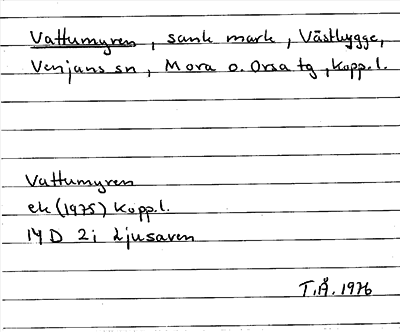 Vattumyren, sank mark, Västbygge,
Venjans sn, Mora o. Orsa tg, Kopp.l.
Vattumyren
ek (1975) Kopp.l.
14 D 2i Ljusaven
T.Å. 1976